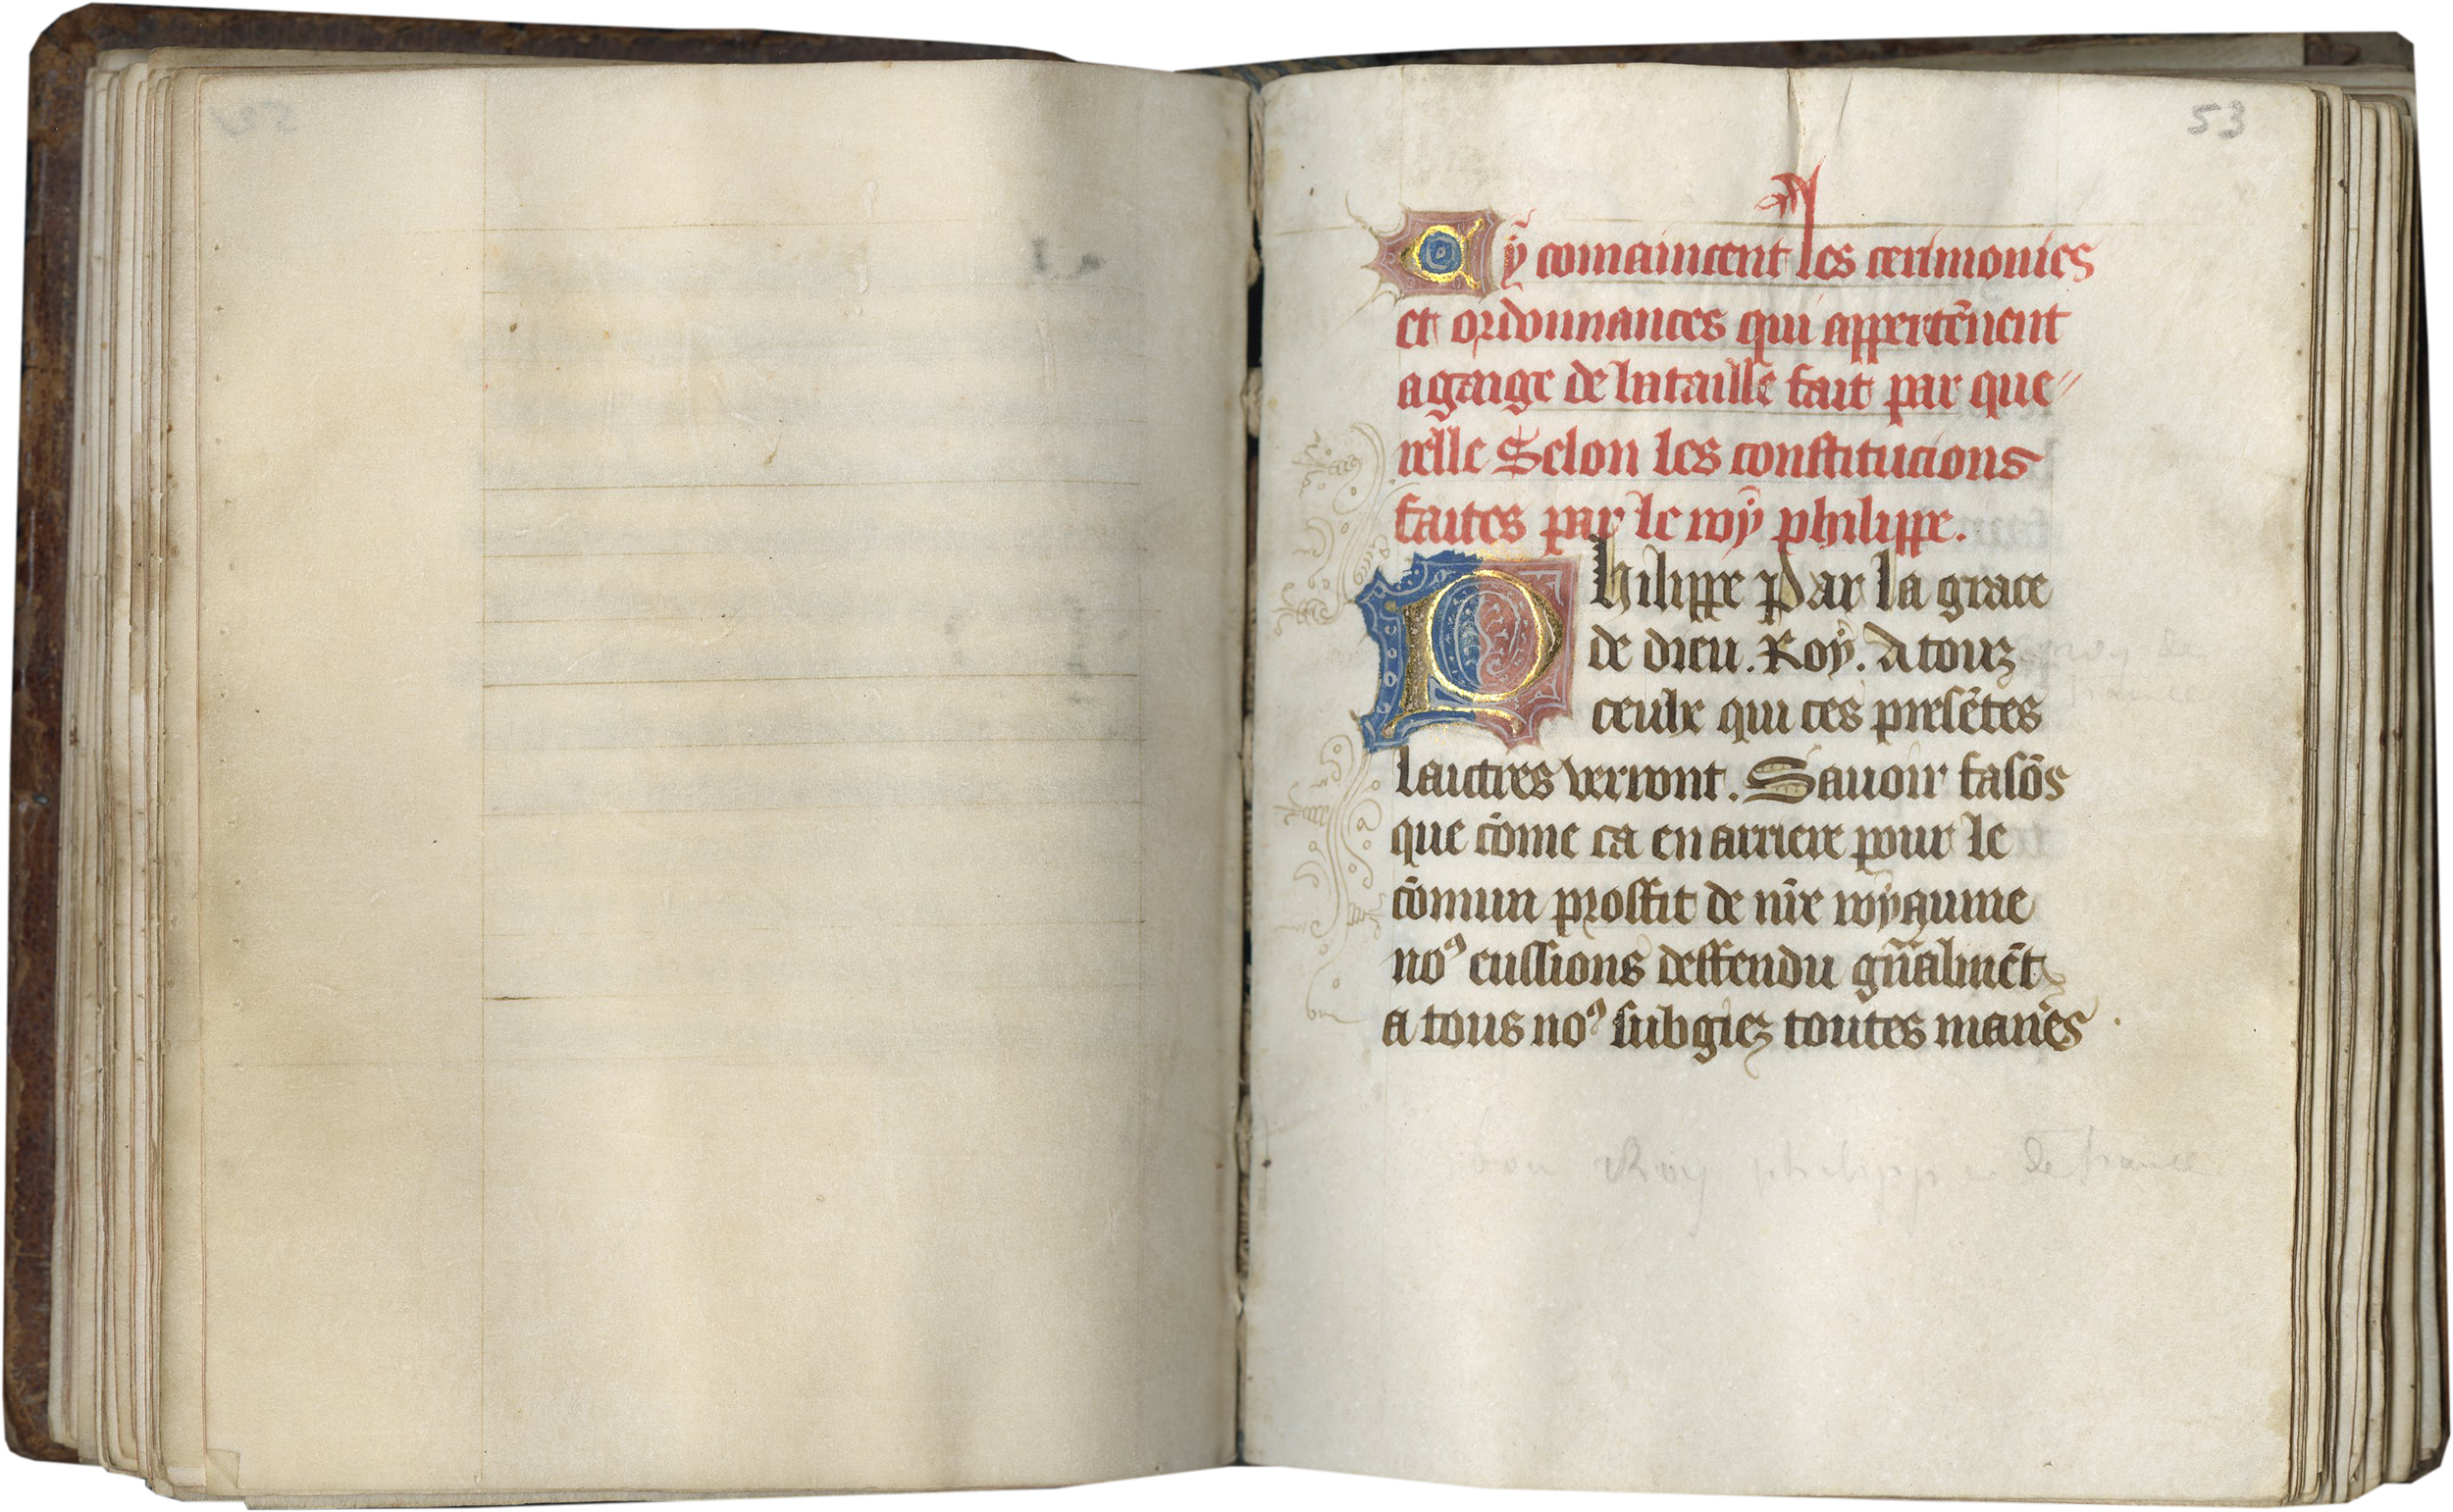 53
Cy comaincent les cerimonies
et ordonnances qui appertẽnent
a gaige de bataille fait par que〃
relle Selon les constitucions
faites par le roy philippe.
Philippe Par la grace
de dieu. Roy. A touz
ceulx qui ces presẽtes
laictres verront. Sauoir faisõs
que cõme ca en arriere pour le
cõmun prouffit de nr̃e royaume
noꝰ eussions deffendu gñalmẽt
a tous noꝰ subgiez toutes manẽs
bon Roy philippe de france